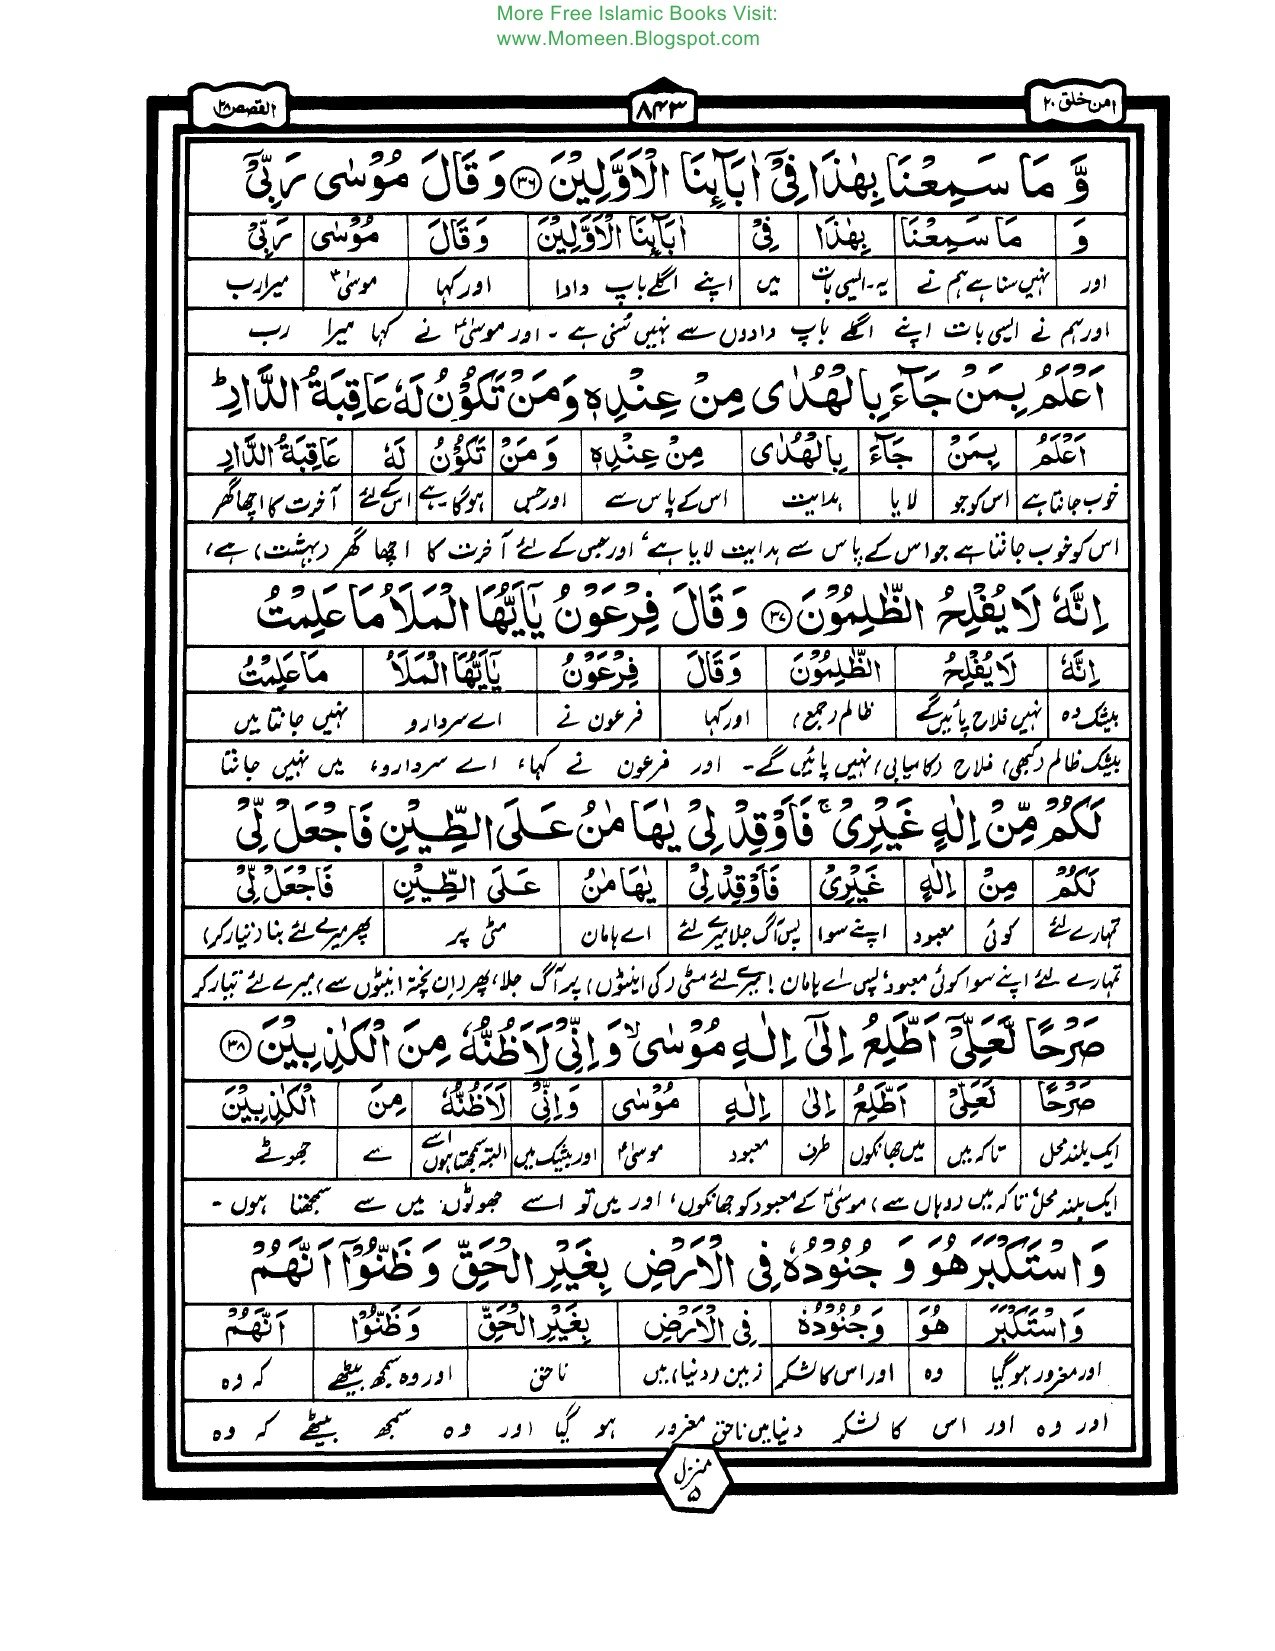 More Free Islamic Books Visit:
www.Momeen.Blogspot.com
امن خلق ۲۰
۸۴۳
القصص ۲۸
وَّ مَا سَمِعْنَا بِهٰذَا فِیْۤ اٰبَآىِٕنَا الْاَوَّلِیْنَ ۳۶ وَ قَالَ مُوْسٰی رَبِّیْۤ
وَ مَا سَمِعْنَا بِهٰذَا فِیْۤ اٰبَآىِٕنَا الْاَوَّلِیْنَ وَ قَالَ مُوْسٰی رَبِّیْ
اور نہیں سنا ہے ہم نے یہ۔ ایسی بات میں اپنے اگلے باپ دادا اور کہا موسیٰؑ میرا رب
اور ہم نے ایسی بات اپنے اگلے باپ دادوں سے نہیں سُنی ہے ۔ اور موسیٰؑ نے کہا میرا رب
اَعْلَمُ بِمَنْ جَآءَ بِالْهُدٰی مِنْ عِنْدِهٖ وَ مَنْ تَكُوْنُ لَهٗ عَاقِبَةُ الدَّارِ ؕ
اَعْلَمُ بِمَنْ جَآءَ بِالْهُدٰی مِنْ عِنْدِهٖ وَ مَنْ تَكُوْنُ لَهٗ عَاقِبَةُ الدَّارِ
خوب جانتا ہے اس کو جو لایا ہدایت اس کے پاس سے اور جس ہوگا ہے اس کے لئے آخرت کا اچھا گھر
اس کو خوب جانتا ہے جو اس کے پاس سے ہدایت لایا ہے، اور جس کے لئے آخرت کا اچھا گھر (بہشت) ہے،
اِنَّهٗ لَا یُفْلِحُ الظّٰلِمُوْنَ ۳۷ وَ قَالَ فِرْعَوْنُ یٰۤاَیُّهَا الْمَلَاُ مَا عَلِمْتُ
اِنَّهٗ لَا یُفْلِحُ الظّٰلِمُوْنَ وَ قَالَ فِرْعَوْنُ یٰۤاَیُّهَا الْمَلَاُ مَا عَلِمْتُ
بیشک وہ نہیں فلاح پائیں گے ظالم (جمع) اور کہا فرعون نے اے سردارو نہیں جانتا میں
بیشک ظالم (کبھی) فلاح (کامیابی) نہیں پائیں گے ۔ اور فرعون نے کہا، اے سردارو، میں نہیں جانتا
لَكُمْ مِّنْ اِلٰهٍ غَیْرِیْ ۚ فَاَوْقِدْ لِیْ یٰهَامٰنُ عَلَی الطِّیْنِ فَاجْعَلْ لِّیْ
لَكُمْ مِنْ اِلٰهٍ غَیْرِیْ فَاَوْقِدْ لِیْ یٰهَامٰنُ عَلَی الطِّیْنِ فَاجْعَلْ لِّیْ
تمہارے لئے کوئی معبود اپنے سوا پس آگ جلا میرے لئے اے ہامان مٹی پر پھر میرے لئے بنا (تیار کر)
تمہارے لئے اپنے سوا کوئی معبود، پس اے ہامان! میرے لئے مٹی (کی اینٹوں) پر آگ جلا، پھر (ان پختہ اینٹوں سے) میرے لئے تیار کر
صَرْحًا لَّعَلِّیْۤ اَطَّلِعُ اِلٰۤی اِلٰهِ مُوْسٰی ۙ وَ اِنِّیْ لَاَظُنُّهٗ مِنَ الْكٰذِبِیْنَ ۳۸
صَرْحًا لَعَلِّیْ اَطَّلِعُ اِلٰی اِلٰهِ مُوْسٰی وَ اِنِّیْ لَاَظُنُّهٗ مِنَ الْكٰذِبِیْنَ
ایک بلند محل تاکہ میں میں جھانکوں طرف معبود موسیٰؑ اور بیشک میں البتہ سمجھتا ہوں اسے سے جھوٹے
ایک بلند محل، تاکہ میں (وہاں سے) موسیٰؑ کے معبود کو جھانکوں، اور میں تو اسے جھوٹوں میں سے سمجھتا ہوں ۔
وَ اسْتَكْبَرَ هُوَ وَ جُنُوْدُهٗ فِی الْاَرْضِ بِغَیْرِ الْحَقِّ وَ ظَنُّوْۤا اَنَّهُمْ
وَ اسْتَكْبَرَ هُوَ وَ جُنُوْدُهٗ فِی الْاَرْضِ بِغَیْرِ الْحَقِّ وَ ظَنُّوْۤا اَنَّهُمْ
اور مغرور ہو گیا وہ اور اس کا لشکر زمین (دنیا) میں ناحق اور وہ سمجھ بیٹھے کہ وہ
اور وہ اور اس کا لشکر دنیا میں ناحق مغرور ہو گیا اور وہ سمجھ بیٹھے کہ وہ
منزل ۵